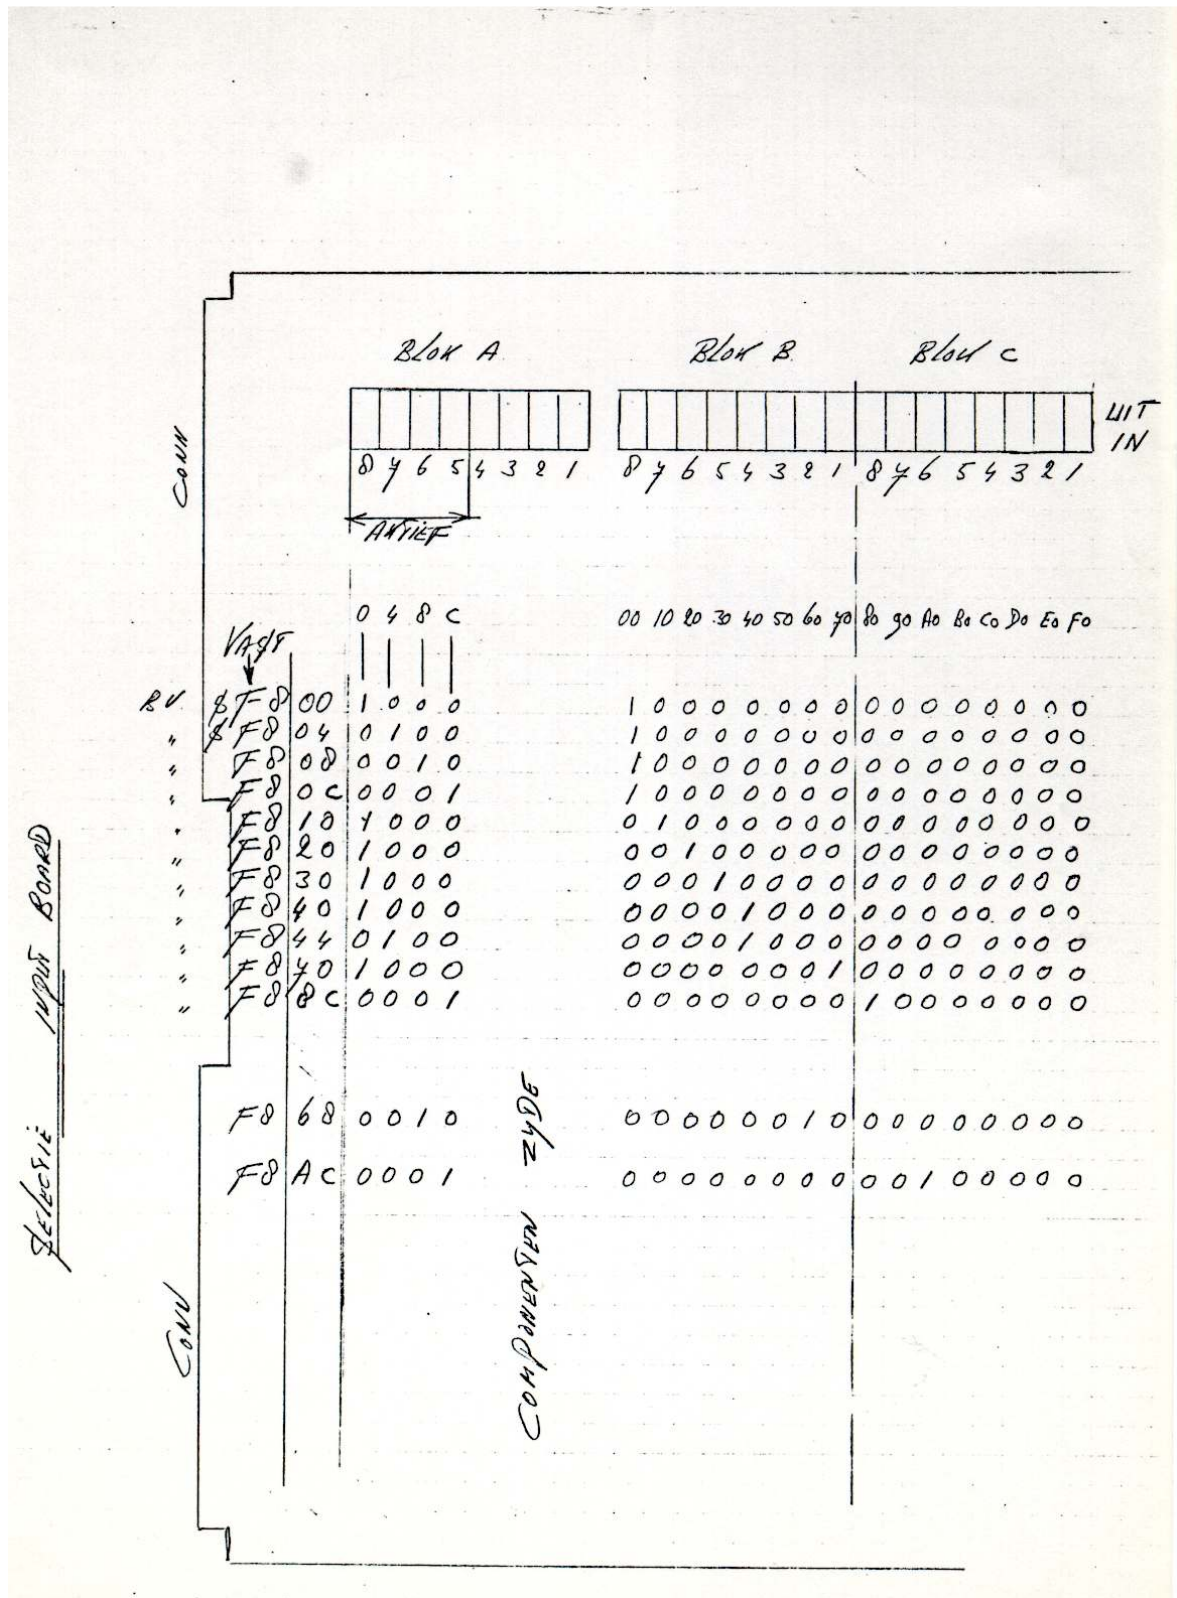 BLOK A BLOK B. BLOK C
UIT
IN
8 7 6 5 4 3 2 1 8 7 6 5 4 3 2 1 8 7 6 5 4 3 2 1
AKTIEF
CONN
0 4 8 C 00 10 20 30 40 50 60 70 80 90 A0 B0 C0 D0 E0 F0
VAST
BV. $ F8 00 1 0 0 0 1 0 0 0 0 0 0 0 0 0 0 0 0 0 0 0
" $ F8 04 0 1 0 0 1 0 0 0 0 0 0 0 0 0 0 0 0 0 0 0
" F8 08 0 0 1 0 1 0 0 0 0 0 0 0 0 0 0 0 0 0 0 0
" F8 0C 0 0 0 1 1 0 0 0 0 0 0 0 0 0 0 0 0 0 0 0
" F8 10 1 0 0 0 0 1 0 0 0 0 0 0 0 0 0 0 0 0 0 0
" F8 20 1 0 0 0 0 0 1 0 0 0 0 0 0 0 0 0 0 0 0 0
" F8 30 1 0 0 0 0 0 0 1 0 0 0 0 0 0 0 0 0 0 0 0
" F8 40 1 0 0 0 0 0 0 0 1 0 0 0 0 0 0 0 0 0 0 0
" F8 44 0 1 0 0 0 0 0 0 1 0 0 0 0 0 0 0 0 0 0 0
" F8 70 1 0 0 0 0 0 0 0 0 0 0 1 0 0 0 0 0 0 0 0
" F8 8C 0 0 0 1 0 0 0 0 0 0 0 0 1 0 0 0 0 0 0 0
F8 68 0 0 1 0 0 0 0 0 0 0 1 0 0 0 0 0 0 0 0 0
F8 AC 0 0 0 1 0 0 0 0 0 0 0 0 0 0 1 0 0 0 0 0
COMPONENTEN ZYDE
SELECTIE INPUT BOARD
CONN